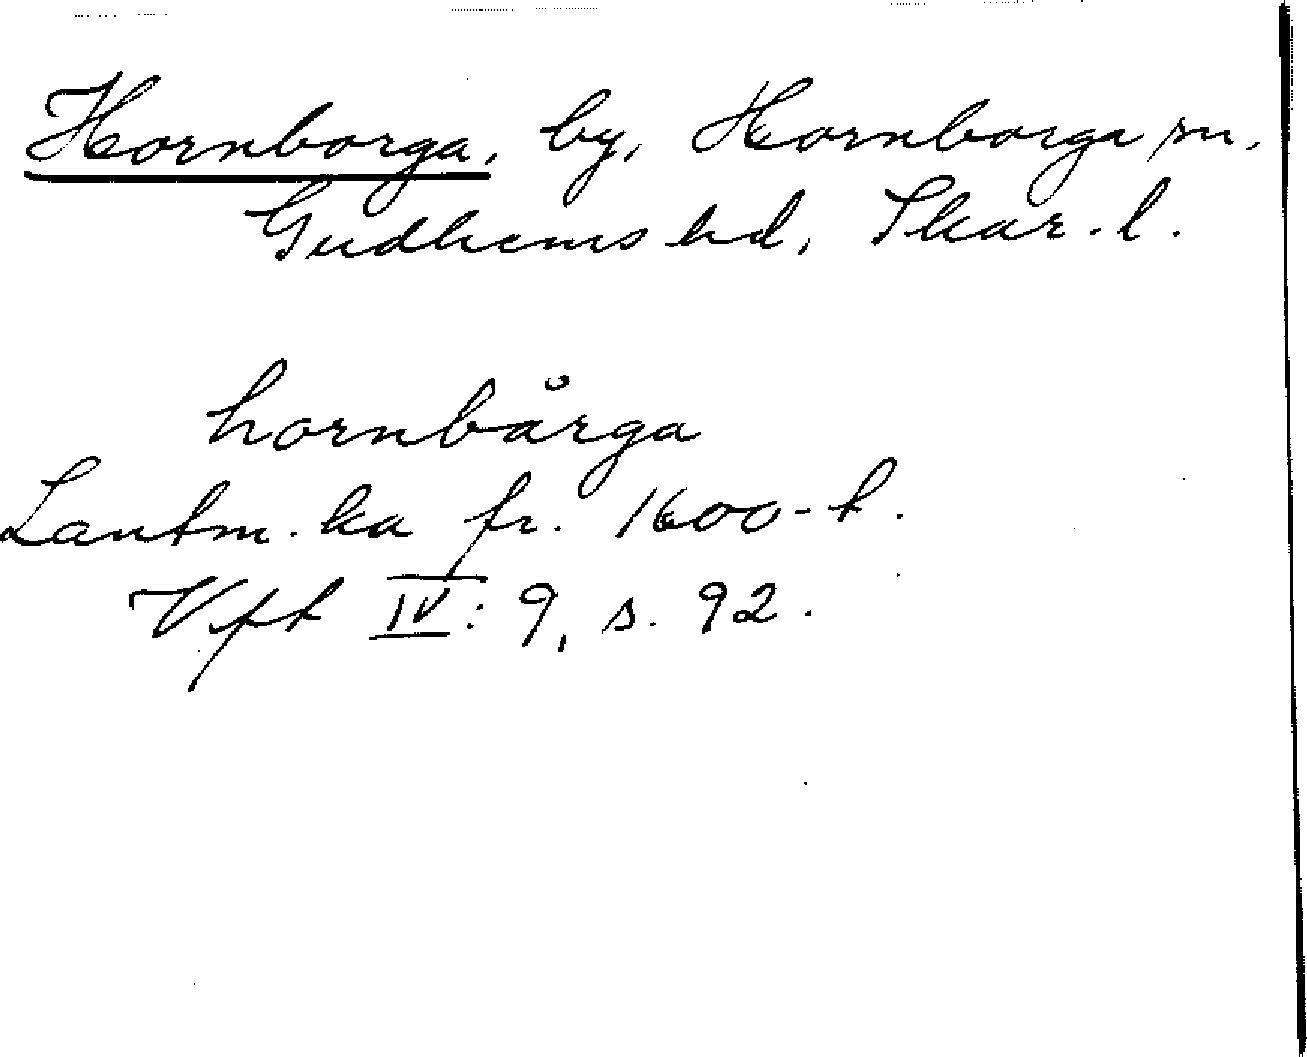 Hornborga, by, Hornborga sn.
Gudhems hd, Skar. l.
hornbårga
Lantm. ka fr. 1600-t.
Vft IV: 9, s. 92.